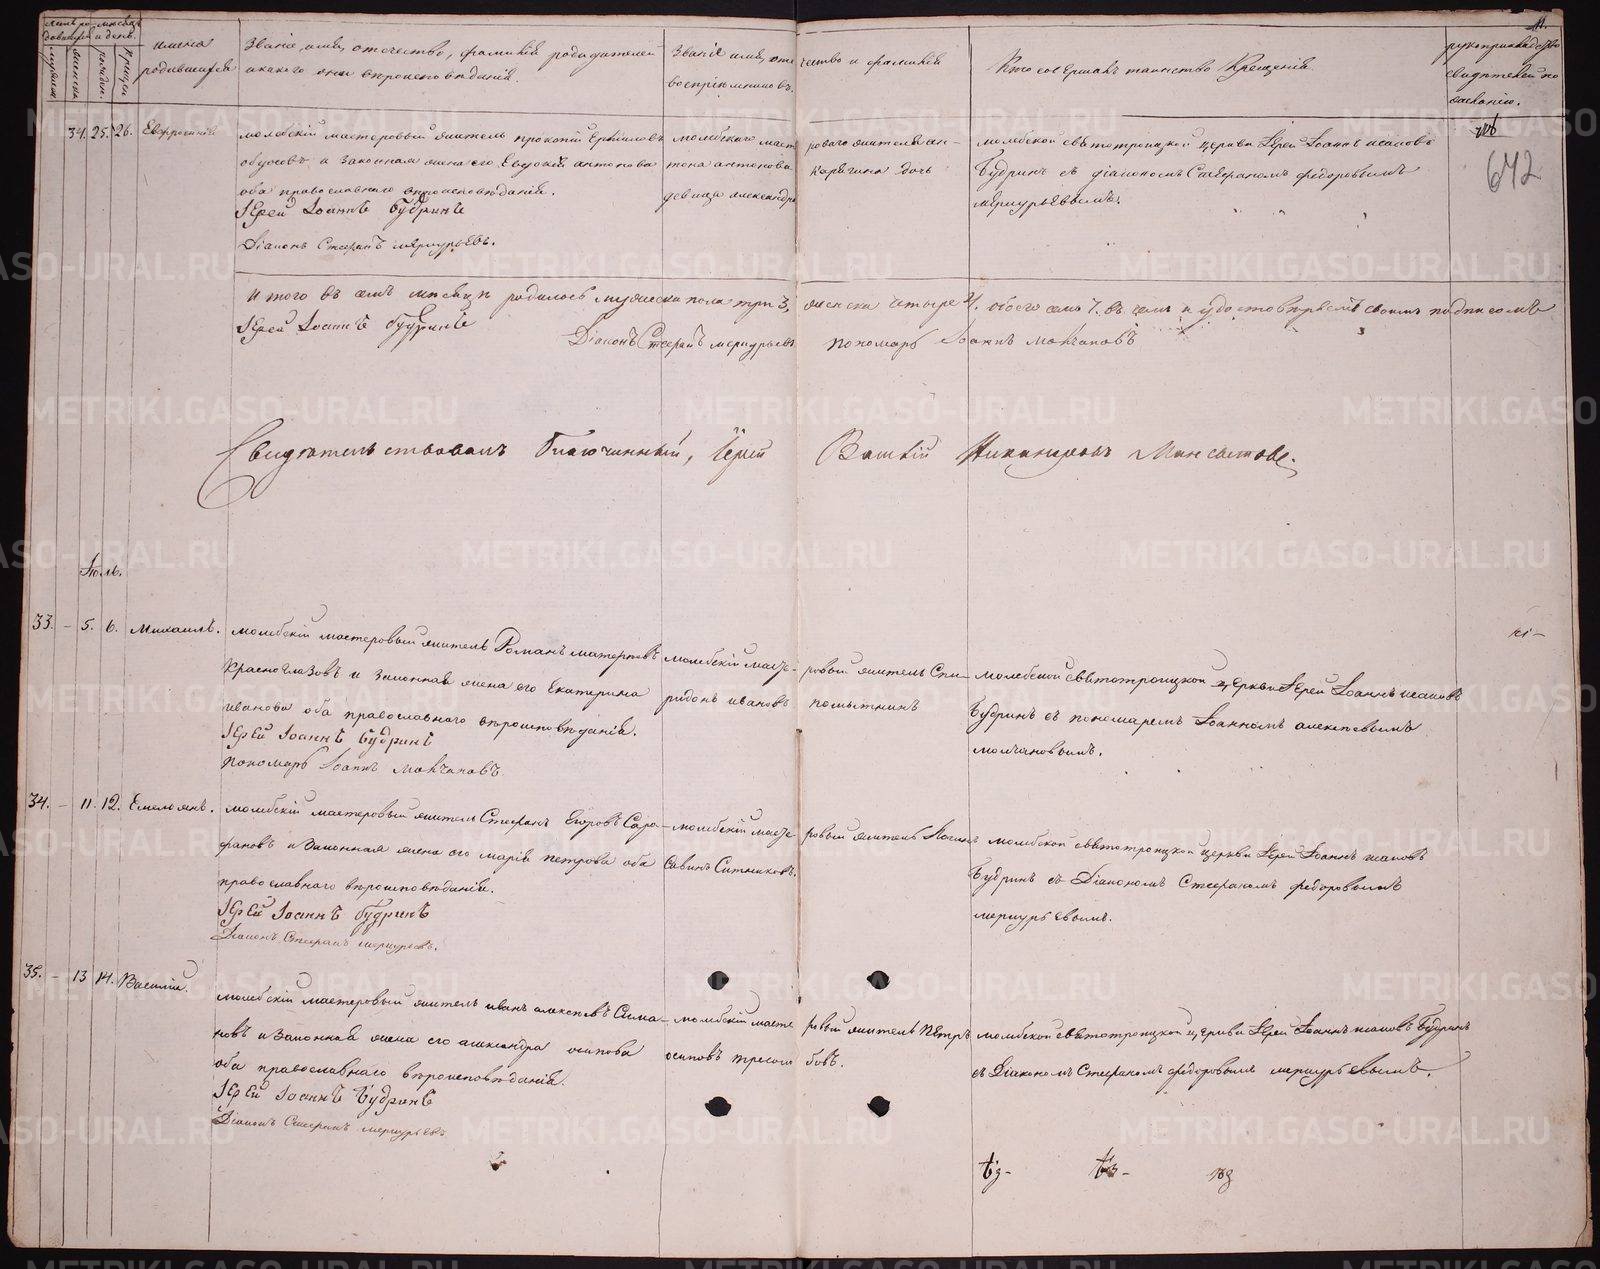 11.
имена
родившихся
Званіе, имя, отечество, фамилія родителей
и какого они вѣроисповѣданія.
Званіе имя, оте чество и фамилія
воспріемниковъ.
Кто совершалъ таинство Крещенія.
рукоприкладство
свидѣтелей по
желанію.
34. 25. 26. Евфросинія
молебскій мастеровый житель прокопій
и законная жена его Евдокія антонова
оба православнаго вѣроисповѣданія.
Іерей Іоаннъ Будринъ
Діаконъ Стефанъ меркурьевъ.
молебскаго масте роваго жителя ан-
тона антонова Карягина дочь
девица александра
молебской святотроицкой церкви Іерей Іоаннъ исаковъ
Будринъ съ діакономъ Стефаномъ федоровымъ
меркурьевымъ.
642
Итого въ семъ месяцѣ родилось мужеска пола три 3, женска четыре 4. обоего семь 7. въ чемъ и удостовѣряемъ своимъ подписомъ
Іерей Іоаннъ Будринъ
Діаконъ Стефанъ меркурьевъ Пономарь Іоаннъ Молчановъ
Свидѣтельствовалъ Благочинный, Іерей
Іюль.
33. – 5. 6. Михаилъ.
молебскій мастеровый житель Романъ
Красноглазовъ и законная жена его Екатерина
иванова оба православнаго вѣроисповѣданія.
Іерей Іоаннъ Будринъ
Пономарь Іоаннъ Молчановъ
молебскій масте- ровый житель Спи-
ридонъ ивановъ
молебской святотроицкой церкви Іерей Іоаннъ исаковъ
Будринъ съ пономаремъ Іоанномъ алексѣевымъ
молчановымъ.
34. – 11. 12. Емельянъ.
молебскій мастеровый житель Стефанъ Егоровъ Сара-
фановъ и законная жена его марія петрова оба
православнаго вѣроисповѣданія.
Іерей Іоаннъ Будринъ
Діаконъ Стефанъ меркурьевъ.
молебскій масте- ровый житель
Савинъ Ситниковъ.
молебской святотроицкой церкви Іерей Іоаннъ исаковъ
Будринъ съ Діакономъ Стефаномъ федоровымъ
меркурьевымъ.
35. – 13 14. Василій.
молебскій мастеровый житель иванъ алексѣевъ Сима-
новъ и законная жена его александра осипова
оба православнаго вѣроисповѣданія.
Іерей Іоаннъ Будринъ
Діаконъ Стефанъ меркурьевъ
молебскій масте ровый житель Петръ
осиповъ
молебской святотроицкой церкви Іерей Іоаннъ исаковъ Будринъ
съ Діакономъ Стефаномъ федоровымъ меркурьевымъ.
METRIKI.GASO-URAL.RU